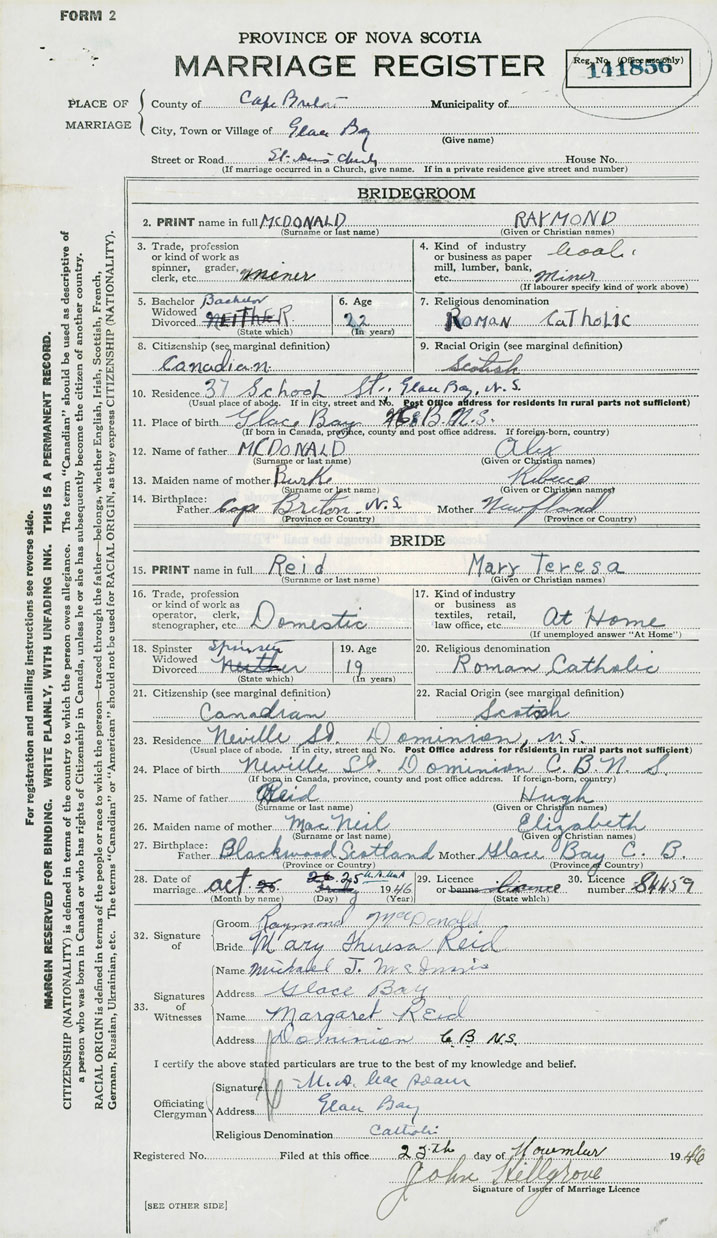 FORM 2
PROVINCE OF NOVA SCOTIA
MARRIAGE REGISTER
Reg. No. (Office use only)
141856
PLACE OF MARRIAGE
County of Cape Breton Municipality of
City, Town or Village of Glace Bay
(Give name)
Street or Road St. Ann's Church House No.
(If marriage occurred in a Church, give name. If in a private residence give street and number)
BRIDEGROOM
2. PRINT name in full MCDONALD RAYMOND
(Surname or last name) (Given or Christian names)
3. Trade, profession or kind of work as spinner, grader, clerk, etc. miner
4. Kind of industry or business as paper mill, lumber, bank, etc. Coal Miner
(If labourer specify kind of work above)
5. Bachelor Widowed Divorced Bachelor NEITHER
(State which)
6. Age 22
(In years)
7. Religious denomination
ROMAN CATHOLIC
8. Citizenship (see marginal definition)
Canadian
9. Racial Origin (see marginal definition)
Scotish
10. Residence 37 School St., Glace Bay, N.S.
(Usual place of abode. If in city, street and No. Post Office address for residents in rural parts not sufficient)
11. Place of birth Glace Bay C.B.N.S.
(If born in Canada, province, county and post office address. If foreign-born, country)
12. Name of father MCDONALD Alex
(Surname or last name) (Given or Christian names)
13. Maiden name of mother Burke Rebecca
(Surname or last name) (Given or Christian names)
14. Birthplace: Father Cape Breton N.S. Mother Newfland
(Province or Country) (Province or Country)
BRIDE
15. PRINT name in full Reid Mary Teresa
(Surname or last name) (Given or Christian names)
16. Trade, profession or kind of work as operator, clerk, stenographer, etc. Domestic
17. Kind of industry or business as textiles, retail, law office, etc. At Home
(If unemployed answer "At Home")
18. Spinster Widowed Divorced Spinster Neither
(State which)
19. Age 19
(In years)
20. Religious denomination
Roman Catholic
21. Citizenship (see marginal definition)
Canadian
22. Racial Origin (see marginal definition)
Scotish
23. Residence Neville St. Dominion, N.S.
(Usual place of abode. If in city, street and No. Post Office address for residents in rural parts not sufficient)
24. Place of birth Neville St. Dominion C.B.N.S.
(If born in Canada, province, county and post office address. If foreign-born, country)
25. Name of father Reid Hugh
(Surname or last name) (Given or Christian names)
26. Maiden name of mother MacNeil Elizabeth
(Surname or last name) (Given or Christian names)
27. Birthplace: Father Blackwood Scotland Mother Glace Bay C.B.
(Province or Country) (Province or Country)
28. Date of marriage Oct. 26 25 1946
(Month by name) (Day) (Year)
29. Licence or banns licence
(State which)
30. Licence number 84459
32. Signature of
Groom Raymond MacDonald
Bride Mary Theresa Reid
33. Signatures of Witnesses
Name Michael J. McInnis
Address Glace Bay
Name Margaret Reid
Address Dominion C.B. N.S.
I certify the above stated particulars are true to the best of my knowledge and belief.
Officiating Clergyman
Signature
Address Glace Bay
Religious Denomination Catholic
Registered No. Filed at this office 25th day of November 1946
John Hillgrove
Signature of Issuer of Marriage Licence
[SEE OTHER SIDE]
For registration and mailing instructions see reverse side.
MARGIN RESERVED FOR BINDING. WRITE PLAINLY, WITH UNFADING INK. THIS IS A PERMANENT RECORD.
CITIZENSHIP (NATIONALITY) is defined in terms of the country to which the person owes allegiance. The term "Canadian" should be used as descriptive of
a person who was born in Canada or who has rights of Citizenship in Canada, unless he or she has subsequently become the citizen of another country.
RACIAL ORIGIN is defined in terms of the people or race to which the person—traced through the father—belongs, whether English, Irish, Scottish, French,
German, Russian, Ukrainian, etc. The terms "Canadian" or "American" should not be used for RACIAL ORIGIN, as they express CITIZENSHIP (NATIONALITY).